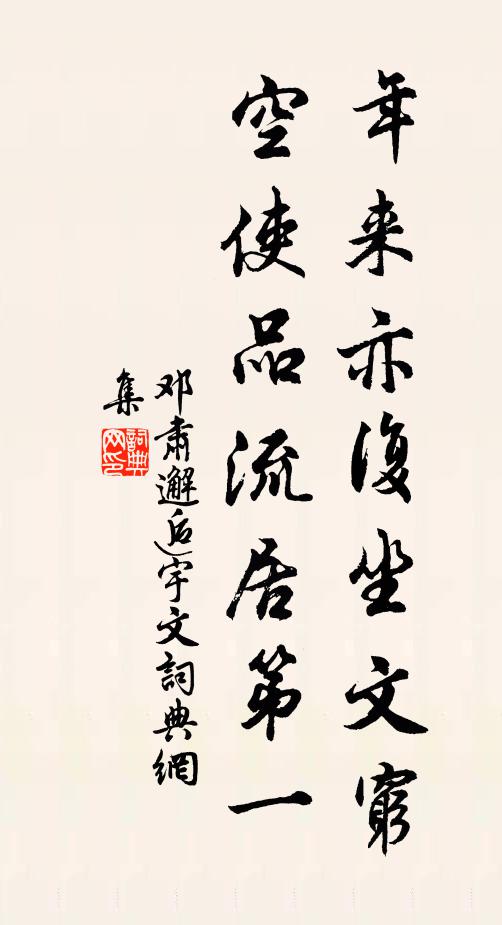 年来亦復坐文窮
空使品流居第一
邓肅邂逅宇文詞典網
集
詞典
网印